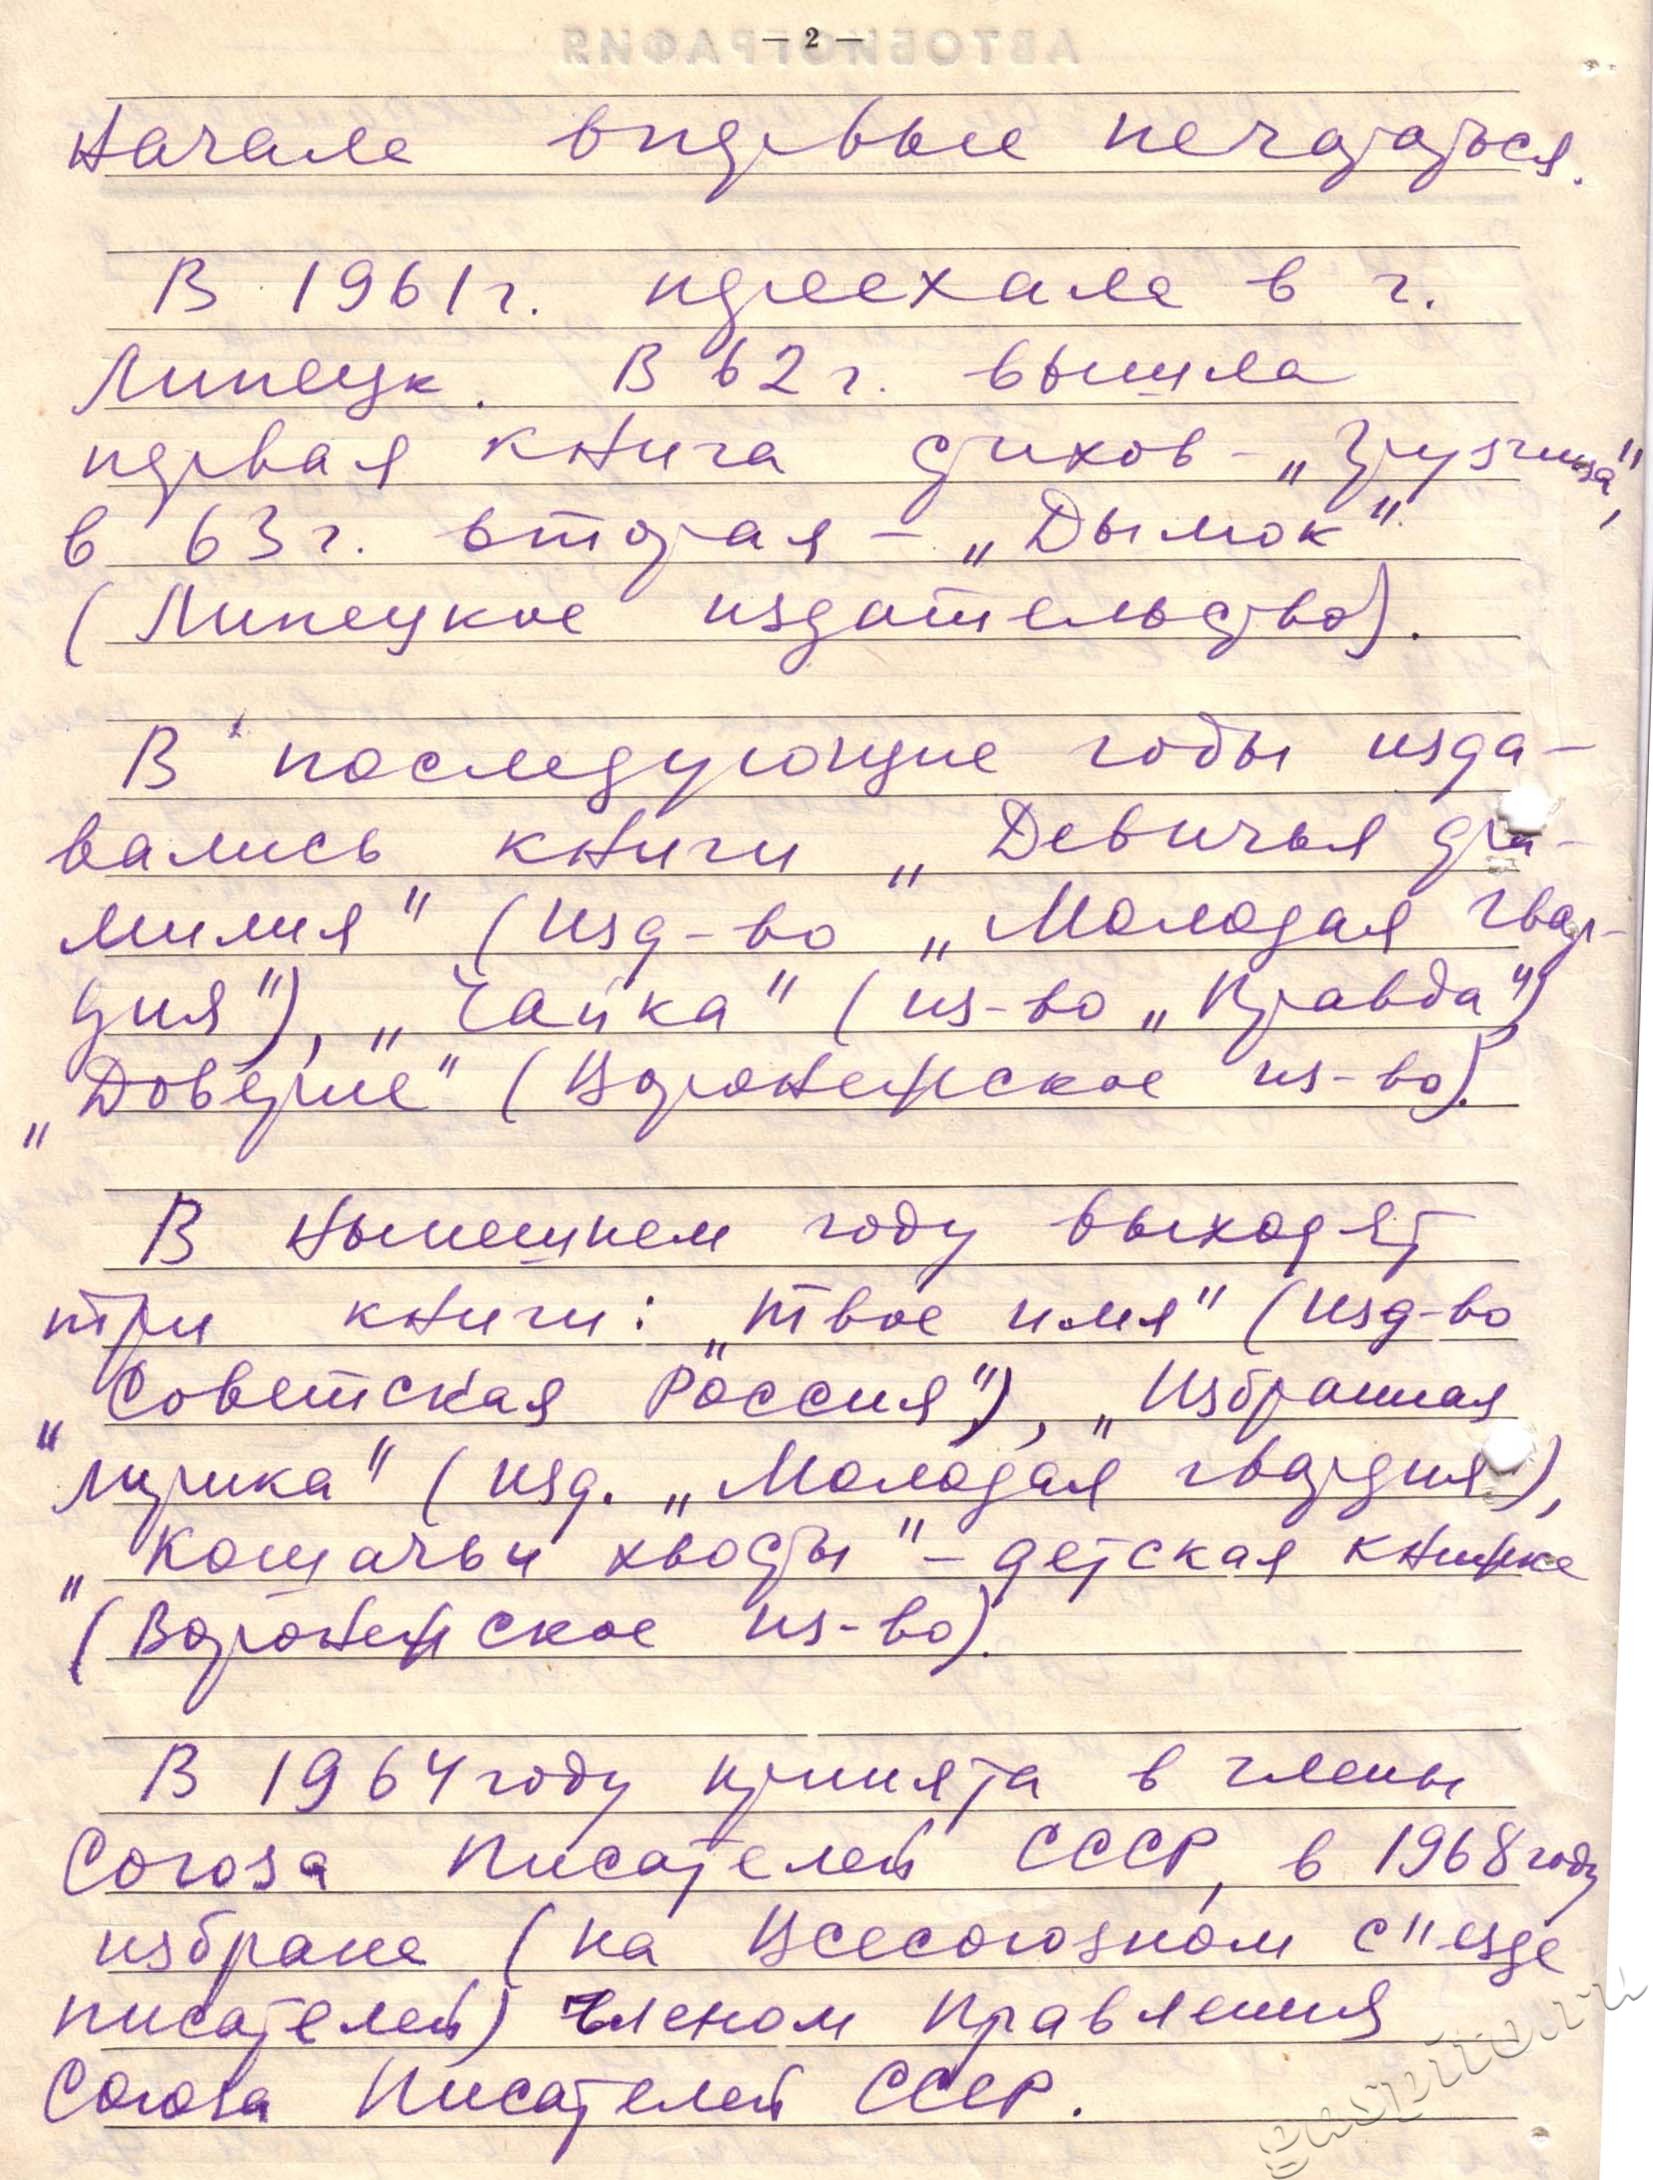 — 2 —
начала впервые печататься.
В 1961 г. приехала в г.
Липецк. В 62 г. вышла
первая книга стихов – „Грузчица",
в 63 г. вторая – „Дымок"
(Липецкое издательство).
В последующие годы изда-
вались книги „Девичья фа-
милия" (Изд-во „Молодая гвар-
дия"), „Чайка" (из-во „Правда")
„Доверие" (Воронежское из-во).
В нынешнем году выходят
три книги: „Твое имя" (Изд-во
„Советская Россия"), „Избранная
лирика" (изд. „Молодая гвардия"),
„Кошачьи хвосты" – детская книжка
(Воронежское из-во).
В 1964 году принята в члены
Союза Писателей СССР, в 1968 году
избрана (на Всесоюзном с"езде
писателей) членом Правления
Союза Писателей СССР.
gaspito.ru